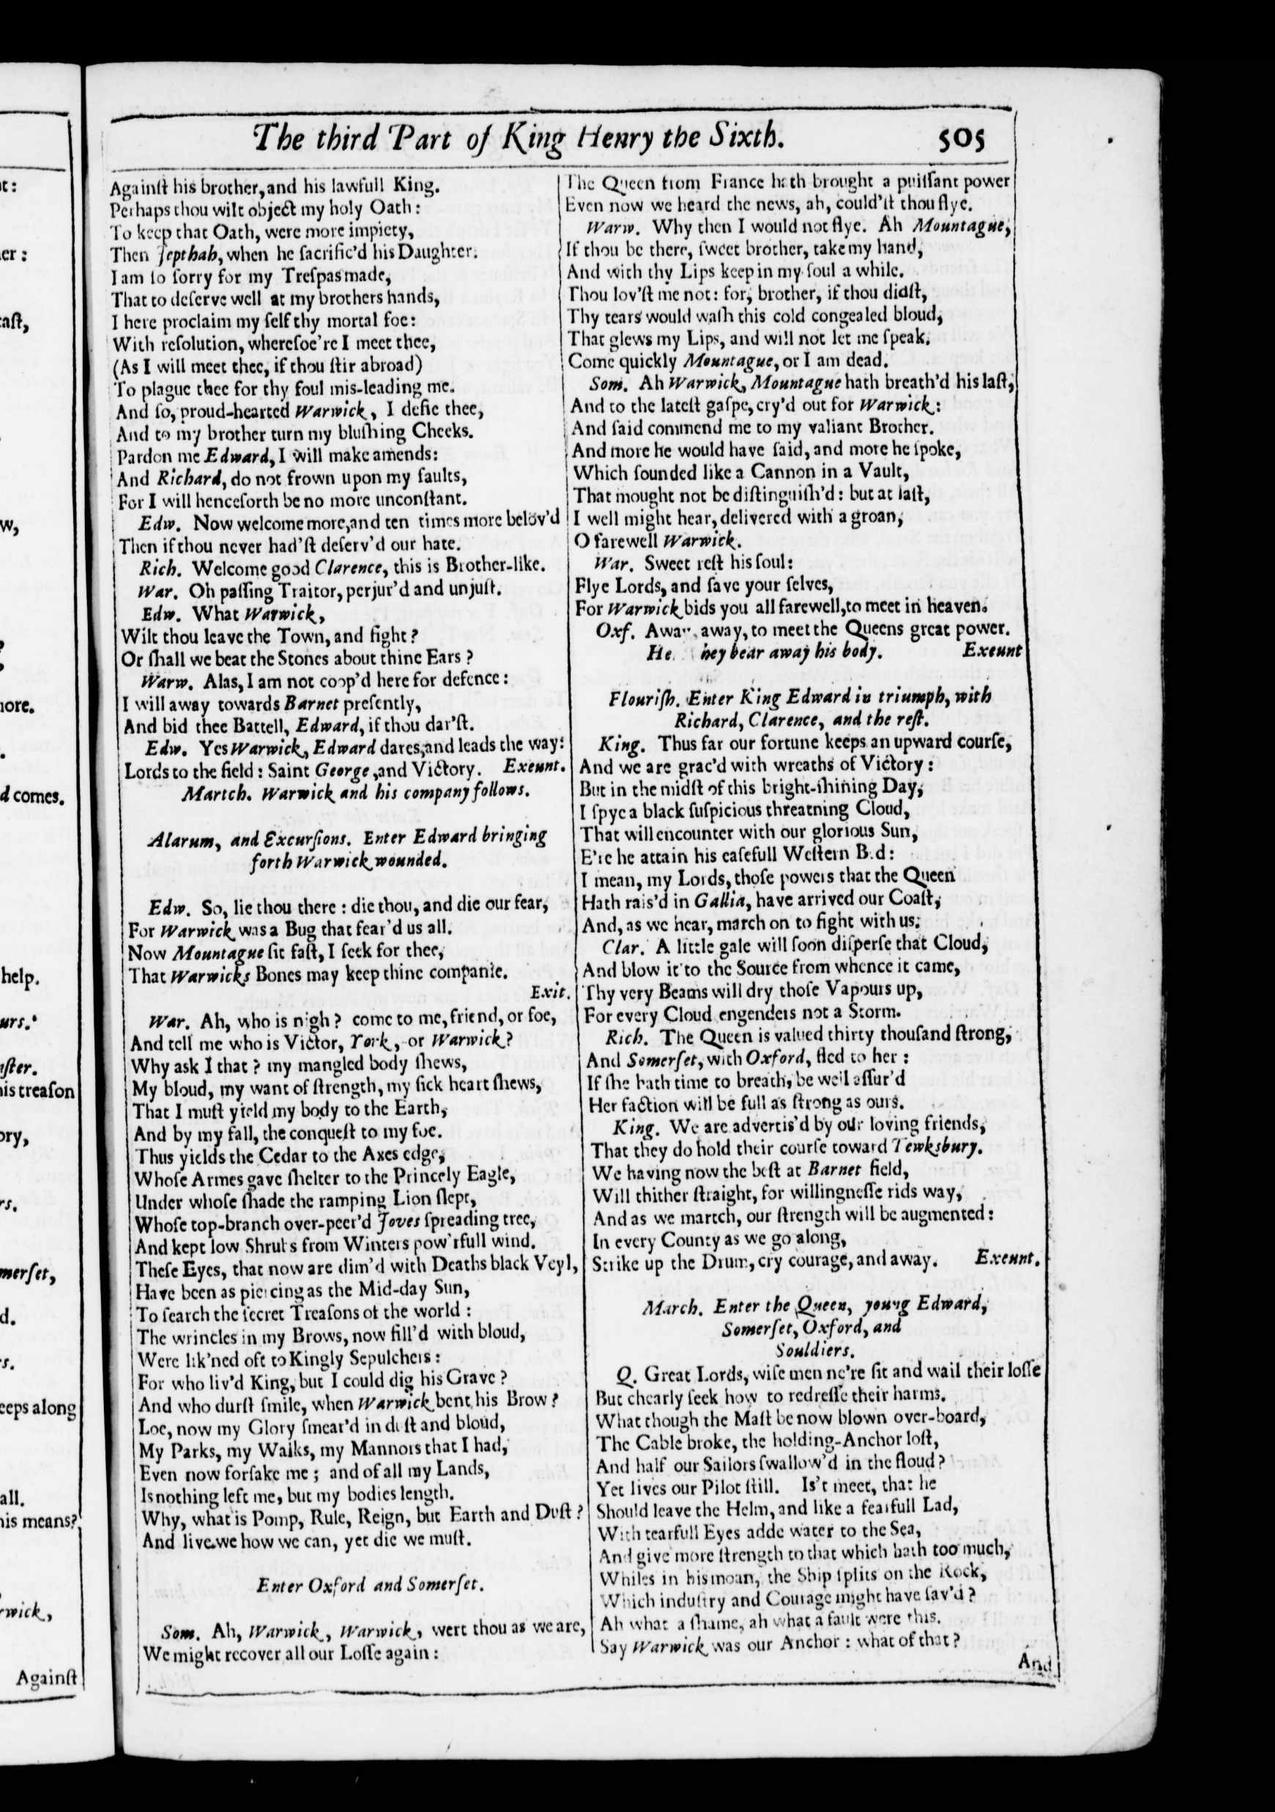 The third Part of King Henry the Sixth.
505
Againſt his brother, and his lawfull King.
Perhaps thou wilt object my holy Oath:
To keep that Oath, were more impiety,
Then Jepthah, when he ſacrific'd his Daughter.
I am ſo ſorry for my Treſpas made,
That to deſerve well at my brothers hands,
I here proclaim my ſelf thy mortal foe:
With reſolution, whereſoe're I meet thee,
(As I will meet thee, if thou ſtir abroad)
To plague thee for thy foul mis-leading me.
And ſo, proud-hearted Warwick, I defie thee,
And to my brother turn my bluſhing Cheeks.
Pardon me Edward, I will make amends:
And Richard, do not frown upon my faults,
For I will henceforth be no more unconſtant.
Edw. Now welcome more, and ten times more belov'd
Then if thou never had'ſt deſerv'd our hate.
Rich. Welcome good Clarence, this is Brother-like.
War. Oh paſſing Traitor, perjur'd and unjuſt.
Edw. What Warwick,
Wilt thou leave the Town, and fight?
Or ſhall we beat the Stones about thine Ears?
Warw. Alas, I am not coop'd here for defence:
I will away towards Barnet preſently,
And bid thee Battell, Edward, if thou dar'ſt.
Edw. Yes Warwick, Edward dares, and leads the way:
Lords to the field: Saint George, and Victory. Exeunt.
Martch. Warwick and his company follows.
Alarum, and Excurſions. Enter Edward bringing
forth Warwick wounded.
Edw. So, lie thou there: die thou, and die our fear,
For Warwick was a Bug that fear'd us all.
Now Mountague ſit faſt, I ſeek for thee,
That Warwicks Bones may keep thine companie.
Exit.
War. Ah, who is nigh? come to me, friend, or foe,
And tell me who is Victor, York, or Warwick?
Why ask I that? my mangled body ſhews,
My bloud, my want of ſtrength, my ſick heart ſhews,
That I muſt yield my body to the Earth,
And by my fall, the conqueſt to my foe.
Thus yields the Cedar to the Axes edge,
Whoſe Armes gave ſhelter to the Princely Eagle,
Under whoſe ſhade the ramping Lion ſlept,
Whoſe top-branch over-peer'd Joves ſpreading tree,
And kept low Shrubs from Winters pow'rfull wind.
Theſe Eyes, that now are dim'd with Deaths black Veyl,
Have been as piercing as the Mid-day Sun,
To ſearch the ſecret Treaſons of the world:
The wrincles in my Brows, now fill'd with bloud,
Were lik'ned oft to Kingly Sepulchers:
For who liv'd King, but I could dig his Grave?
And who durſt ſmile, when Warwick bent his Brow?
Loe, now my Glory ſmear'd in duſt and bloud,
My Parks, my Walks, my Mannors that I had,
Even now forſake me; and of all my Lands,
Is nothing left me, but my bodies length.
Why, what is Pomp, Rule, Reign, but Earth and Duſt?
And live we how we can, yet die we muſt.
Enter Oxford and Somerſet.
Som. Ah, Warwick, Warwick, wert thou as we are,
We might recover all our Loſſe again:
The Queen from France hath brought a puiſſant power
Even now we heard the news, ah, could'ſt thou flye.
Warw. Why then I would not flye. Ah Mountague,
If thou be there, ſweet brother, take my hand,
And with thy Lips keep in my ſoul a while.
Thou lov'ſt me not: for, brother, if thou didſt,
Thy tears would waſh this cold congealed bloud,
That glews my Lips, and will not let me ſpeak.
Come quickly Mountague, or I am dead.
Som. Ah Warwick, Mountague hath breath'd his laſt,
And to the lateſt gaſpe, cry'd out for Warwick:
And ſaid commend me to my valiant Brother.
And more he would have ſaid, and more he ſpoke,
Which ſounded like a Cannon in a Vault,
That mought not be diſtinguiſh'd: but at laſt,
I well might hear, delivered with a groan,
O farewell Warwick.
War. Sweet reſt his ſoul:
Flye Lords, and ſave your ſelves,
For Warwick bids you all farewell, to meet in heaven.
Oxf. Away, away, to meet the Queens great power.
He bear away his body. Exeunt
Flouriſh. Enter King Edward in triumph, with
Richard, Clarence, and the reſt.
King. Thus far our fortune keeps an upward courſe,
And we are grac'd with wreaths of Victory:
But in the midſt of this bright-ſhining Day,
I ſpye a black ſuſpicious threatning Cloud,
That will encounter with our glorious Sun,
E're he attain his eaſefull Weſtern Bed:
I mean, my Lords, thoſe powers that the Queen
Hath rais'd in Gallia, have arrived our Coaſt,
And, as we hear, march on to fight with us.
Clar. A little gale will ſoon diſperſe that Cloud,
And blow it to the Source from whence it came,
Thy very Beams will dry thoſe Vapours up,
For every Cloud engenders not a Storm.
Rich. The Queen is valued thirty thouſand ſtrong,
And Somerſet, with Oxford, fled to her:
If ſhe hath time to breath, be well aſſur'd
Her faction will be full as ſtrong as ours.
King. We are advertis'd by our loving friends,
That they do hold their courſe toward Tewksbury.
We having now the beſt at Barnet field,
Will thither ſtraight, for willingneſſe rids way,
And as we martch, our ſtrength will be augmented:
In every County as we go along,
Strike up the Drum, cry courage, and away. Exeunt.
March. Enter the Queen, young Edward,
Somerſet, Oxford, and
Souldiers.
Q. Great Lords, wiſe men ne're ſit and wail their loſſe
But chearly ſeek how to redreſſe their harms.
What though the Maſt be now blown over-board,
The Cable broke, the holding-Anchor loſt,
And half our Sailors ſwallow'd in the floud?
Yet lives our Pilot ſtill. Is't meet, that he
Should leave the Helm, and like a fearfull Lad,
With tearfull Eyes adde water to the Sea,
And give more ſtrength to that which hath too much,
Whiles in his moan, the Ship ſplits on the Rock,
Which induſtry and Courage might have ſav'd?
Ah what a ſhame, ah what a fault were this.
Say Warwick was our Anchor: what of that?
And